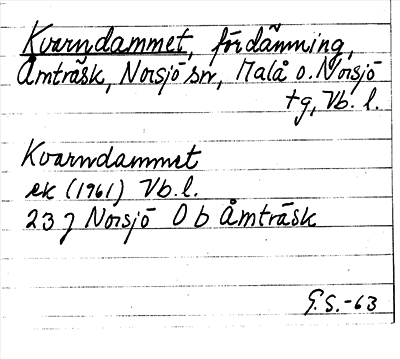 Kvarndammet, fördämning,
Åmträsk, Norsjö sn, Malå o. Norsjö
tg, Vb. l.
Kvarndammet
ek (1961) Vb. l.
23 J Norsjö 0 b Åmträsk
G.S.-63